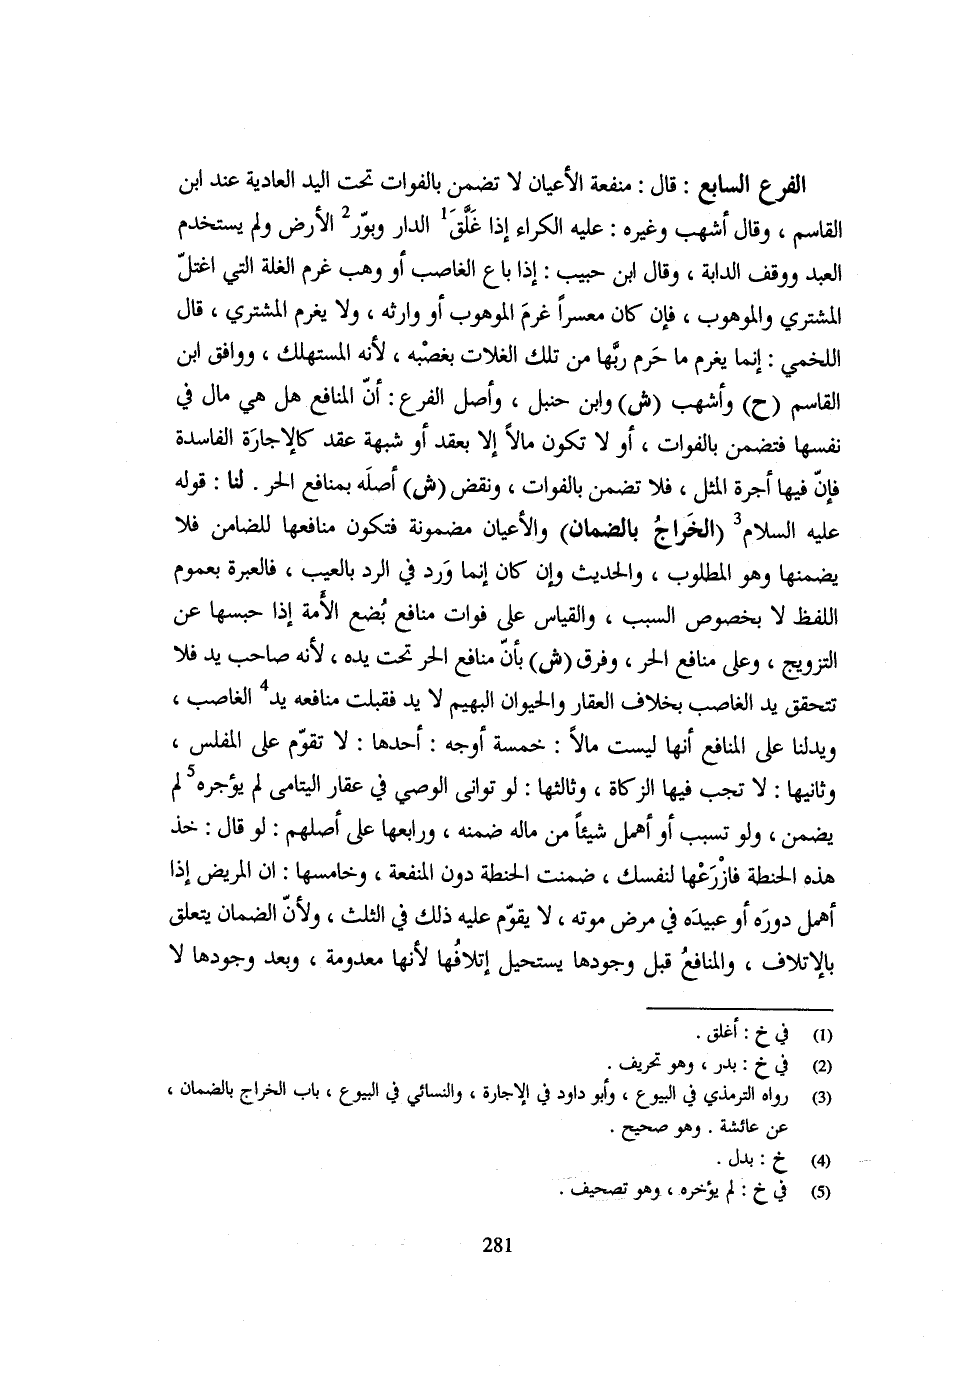 الفرع السابع : قال : منفعة الأعيان لا تضمن بالفوات تحت اليد العادية عند ابن
القاسم ، وقال أشهب وغيره : عليه الكراء إذا غَلَّقَ1 الدار وبوّر2 الأرض ولم يستخدم
العبد ووقف الدابة ، وقال ابن حبيب : إذا باع الغاصب أو وهب غرم الغلة التي اغتلّ
المشتري والموهوب ، فإن كان معسراً غرمَ الموهوب أو وارثه ، ولا يغرم المشتري ، قال
اللخمي : إنما يغرم ما حَرم ربَّها من تلك الغلات بغصْبه ، لأنه المستهلك ، ووافق ابن
القاسم (ح) وأشهب (ش) وابن حنبل ، وأصل الفرع : أنّ المنافع هل هي مال في
نفسها فتضمن بالفوات ، أو لا تكون مالاً إلا بعقد أو شبهة عقد كالإجارَة الفاسدة
فإنّ فيها أجرة المثل ، فلا تضمن بالفوات ، ونقض (ش) أصلَه بمنافع الحر . لنا : قوله
عليه السلام3 (الخَراجُ بالضمان) والأعيان مضمونة فتكون منافعها للضامن فلا
يضمنها وهو المطلوب ، والحديث وإن كان إنما وَرد في الرد بالعيب ، فالعبرة بعموم
اللفظ لا بخصوص السبب ، والقياس على فوات منافع بُضع الأَمة إذا حبسها عن
التزويج ، وعلى منافع الحر ، وفرق (ش) بأنّ منافع الحر تحت يده ، لأنه صاحب يد فلا
تتحقق يد الغاصب بخلاف العقار والحيوان البهيم لا يد فقبلت منافعه يد4 الغاصب ،
ويدلنا على المنافع أنها ليست مالاً : خمسة أوجه : أحدها : لا تقوّم على المفلس ،
وثانيها : لا تجب فيها الزكاة ، وثالثها : لو توانى الوصي في عقار اليتامى لم يؤجره5 لم
يضمن ، ولو تسبب أو أهمل شيئاً من ماله ضمنه ، ورابعها على أصلهم : لو قال : خذ
هذه الحنطة فازْرَعْها لنفسك ، ضمنت الحنطة دون المنفعة ، وخامسها : ان المريض إذا
أهمل دورَه أو عبيدَه في مرض موته ، لا يقوّم عليه ذلك في الثلث ، ولأنّ الضمان يتعلق
بالإتلاف ، والمنافعُ قبل وجودها يستحيل إتلافُها لأنها معدومة ، وبعد وجودها لا
(1) في خ : أغلق .
(2) في خ : بدر ، وهو تحريف .
(3) رواه الترمذي في البيوع ، وأبو داود في الإجارة ، والنسائي في البيوع ، باب الخراج بالضمان ،
عن عائشة . وهو صحيح .
(4) خ : بدل .
(5) في خ : لم يؤخره ، وهو تصحيف .
281